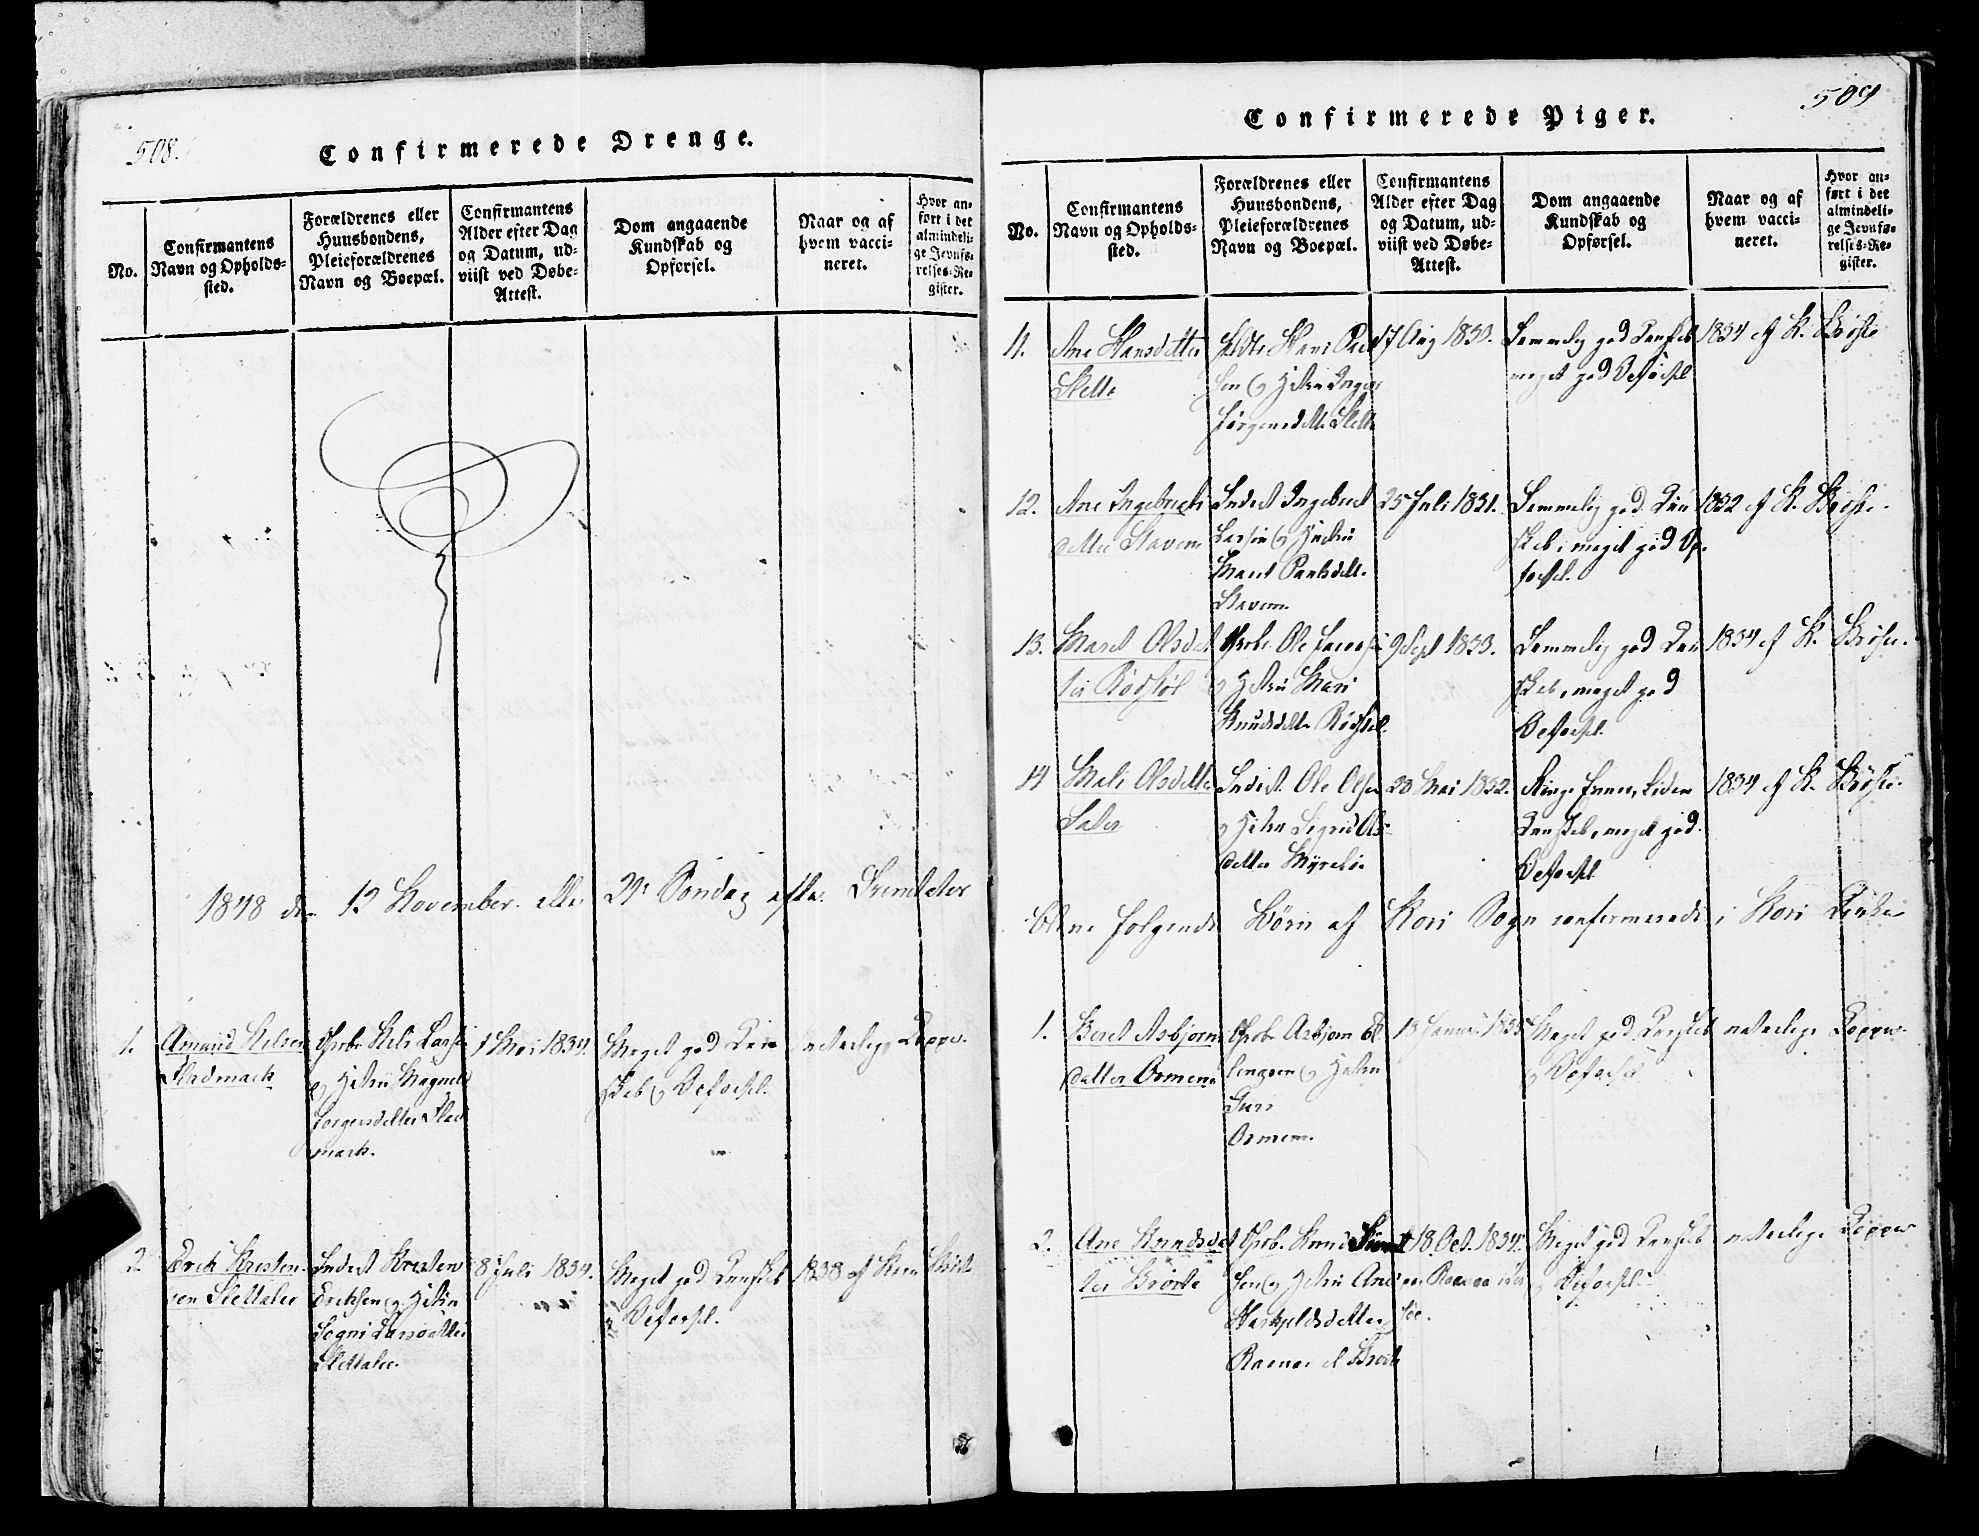 508.
Confirmerede Drenge.
No.
Confirmantens
Navn og Opholds-
sted.
Forældrenes eller
Huusbondens,
Pleieforældrenes
Navn og Boepæl.
Confirmantens
Alder efter Dag
og Datum, ud-
viist ved Døbe-
Attest.
Dom angaaende
Kundskab og
Opførsel.
Naar og af
hvem vacci-
neret.
Hvor an-
ført i det
almindeli-
ge Jevnfø-
relses-Re-
gister.
1848 den 12 November eller 21 Søndag efter Trinitatis
1.
Amund Nelsen
Stadmark
Gaarbr. Nels Larsen
og Hustru Magnel
Jørgensdatter Stad
mark.
1 Mai 1834.
Meget god Kund
skab og Opførsel.
naturlige Kopper.
2
Erik Kristen
sen Slettalie
Inderst Kristen
Eriksen og Hustru
Sogni Larsdatter
Slettalie.
8 Juli 1834.
Meget god Kundskab
og Opførsel.
1838 af
509
Confirmerede Piger.
No.
Confirmantens
Navn og Opholds-
sted.
Forældrenes eller
Huusbondens,
Pleieforældrenes
Navn og Boepæl.
Confirmantens
Alder efter Dag
og Datum, ud-
viist ved Døbe-
Attest.
Dom angaaende
Kundskab og
Opførsel.
Naar og af
hvem vacci-
neret.
Hvor an-
ført i det
almindeli-
ge Jevnfø-
relses-Re-
gister.
11.
Ane Hansdatter
Slette
Hans
sen og Hustru Inger
Jørgensdatter Slette
17 Aug 1833.
Temmelig god Kundskab
meget god Opførsel
1834 af K. Brøste
12.
Ane Ingebrigts
datter Stavem
Inderst Ingebrigt
Larsen og Hustru
Marit Paulsdatter
Stavem.
25 Juli 1831.
Temmelig god Kund
skab, meget god Op-
førsel.
1832 af K. Brøste.
13.
Maret Olsdat
ter Rødstøl
Gaarbr. Ole Jacobsen
og Hustru Mari
Knudsdatter Rødstøl
9 Sept 1833.
Temmelig god Kund
skab, meget god
Opførsel.
1834 af K. Brøste.
14
Mali Olsdatter
Sæter
Inderst Ole Olsen
og Hustru Sigrid Ols-
datter
28 Mai 1832.
Kundskab, meget god
Opførsel
1834 af K. Brøste.
følgende Børn af Kors Sogn confirmerede i Kors Kirke
1.
Beret Asbjørns
datter Ormem
Gaarbr. Asbjørn El
lingsen og Hustru
Guri
Ormem.
13 Januar 1835
Meget god Kundskab
og Opførsel
naturlige Kopper.
2.
Ane Knudsdat
ter Brøste
Gaarbr. Knud
sen og Hustru Ane
18 Oct. 1834.
Meget god Kundskab
og Opførsel.
naturlige Kopper